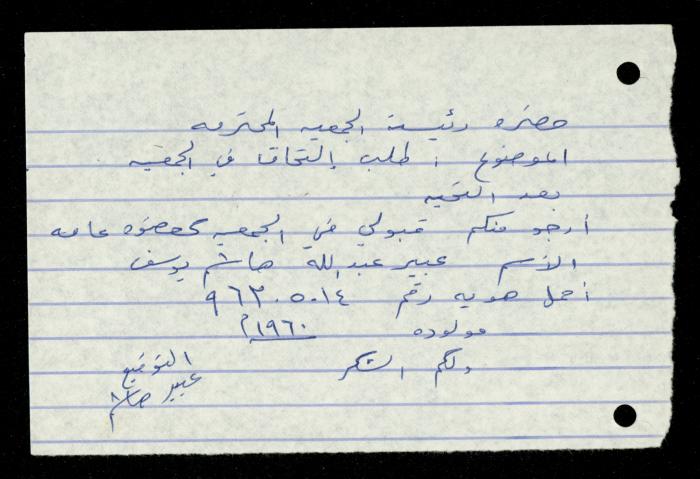 حضره رئيسة الجمعيه المحترمه
الموضوع : طلب إلتحاق في الجمعيه
بعد التحيه
أرجو منكم قبولي في الجمعيه كعضوه عامه
الأسم عبير عبدالله هاشم يوسف
أحمل هويه رقم ٩٦٢٠٥٠١٤
مولوده ١٩٦٠م
ولكم الشكر
التوقيع
عبير هاشم